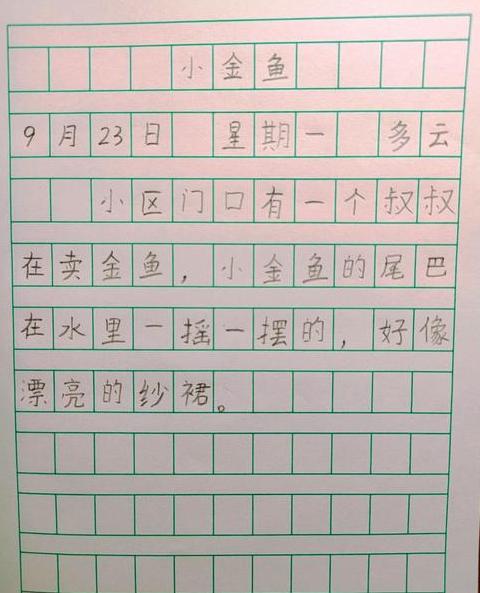 小金鱼
9月23日 星期一 多云
小区门口有一个叔叔
在卖金鱼，小金鱼的尾巴
在水里一摇一摆的，好像
漂亮的纱裙。